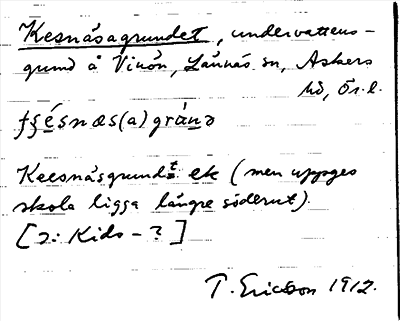 Kesnäsagrundet, undervattens-
grund å Vinön, Lännäs sn, Askers
hd, Ör. l.
Keesnäsgrundet ek (men uppges
skola ligga längre söderut).
[ɔ: Kids - ?]
T. Ericsson 1912.